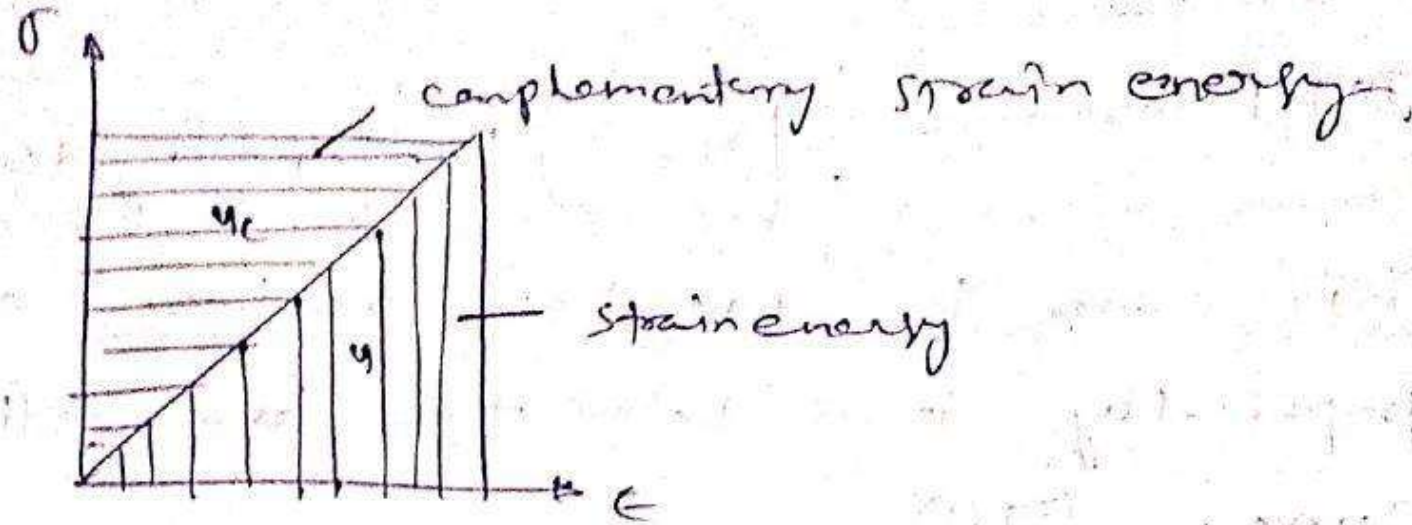 σ
complementary strain energy
u_c
strain energy
u
ε